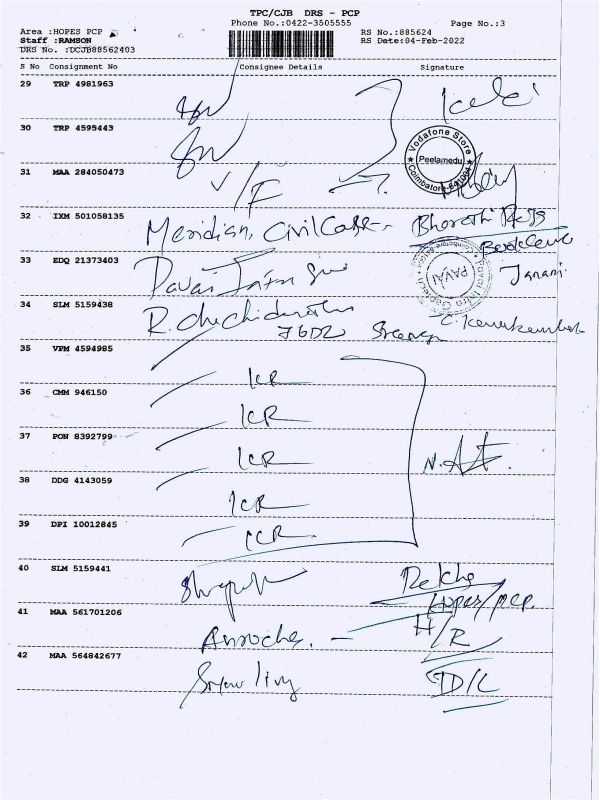 TPC/CJB DRS - PCP
Phone No.:0422-3505555
Page No.:3
Area :HOPES PCP
RS No.:885624
Staff :RAMSON
RS Date:04-Feb-2022
DRS No. :DCJB88562403
S No Consignment No Consignee Details Signature
29 TRP 4981963
30 TRP 4595443
Vodafone Store
Peelamedu
Coimbatore-641004
31 MAA 284050473
V/F
32 IXM 501058135
Meridian, Civil
Bharathi
33 EDQ 21373403
Pavai
PAVAI
Janani
34 SLM 5159438
R.
35 VPM 4594985
ICR
36 CMM 946150
ICR
37 PON 8392799
ICR
38 DDG 4143059
ICR
39 DPI 10012845
ICR
40 SLM 5159441
Rekha
Hopes/pcp.
41 MAA 561701206
H/R
42 MAA 564842677
D/L